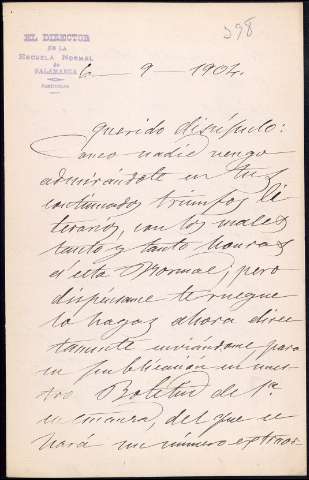 398
EL DIRECTOR
DE LA
ESCUELA NORMAL
DE
SALAMANCA
PARTICULAR
6 - 9 - 1904.
Querido discípulo:
Como nadie vengo
admirándote en tus
continuados triunfos li
terarios, con los cuales
tanto y tanto honras
a esta Normal; pero
dispénsame te ruegue
lo hagas ahora direc
tamente enviándome para
su publicación en nues
tro Boletín de 1ª
enseñanza, del que se
hará un número extraor